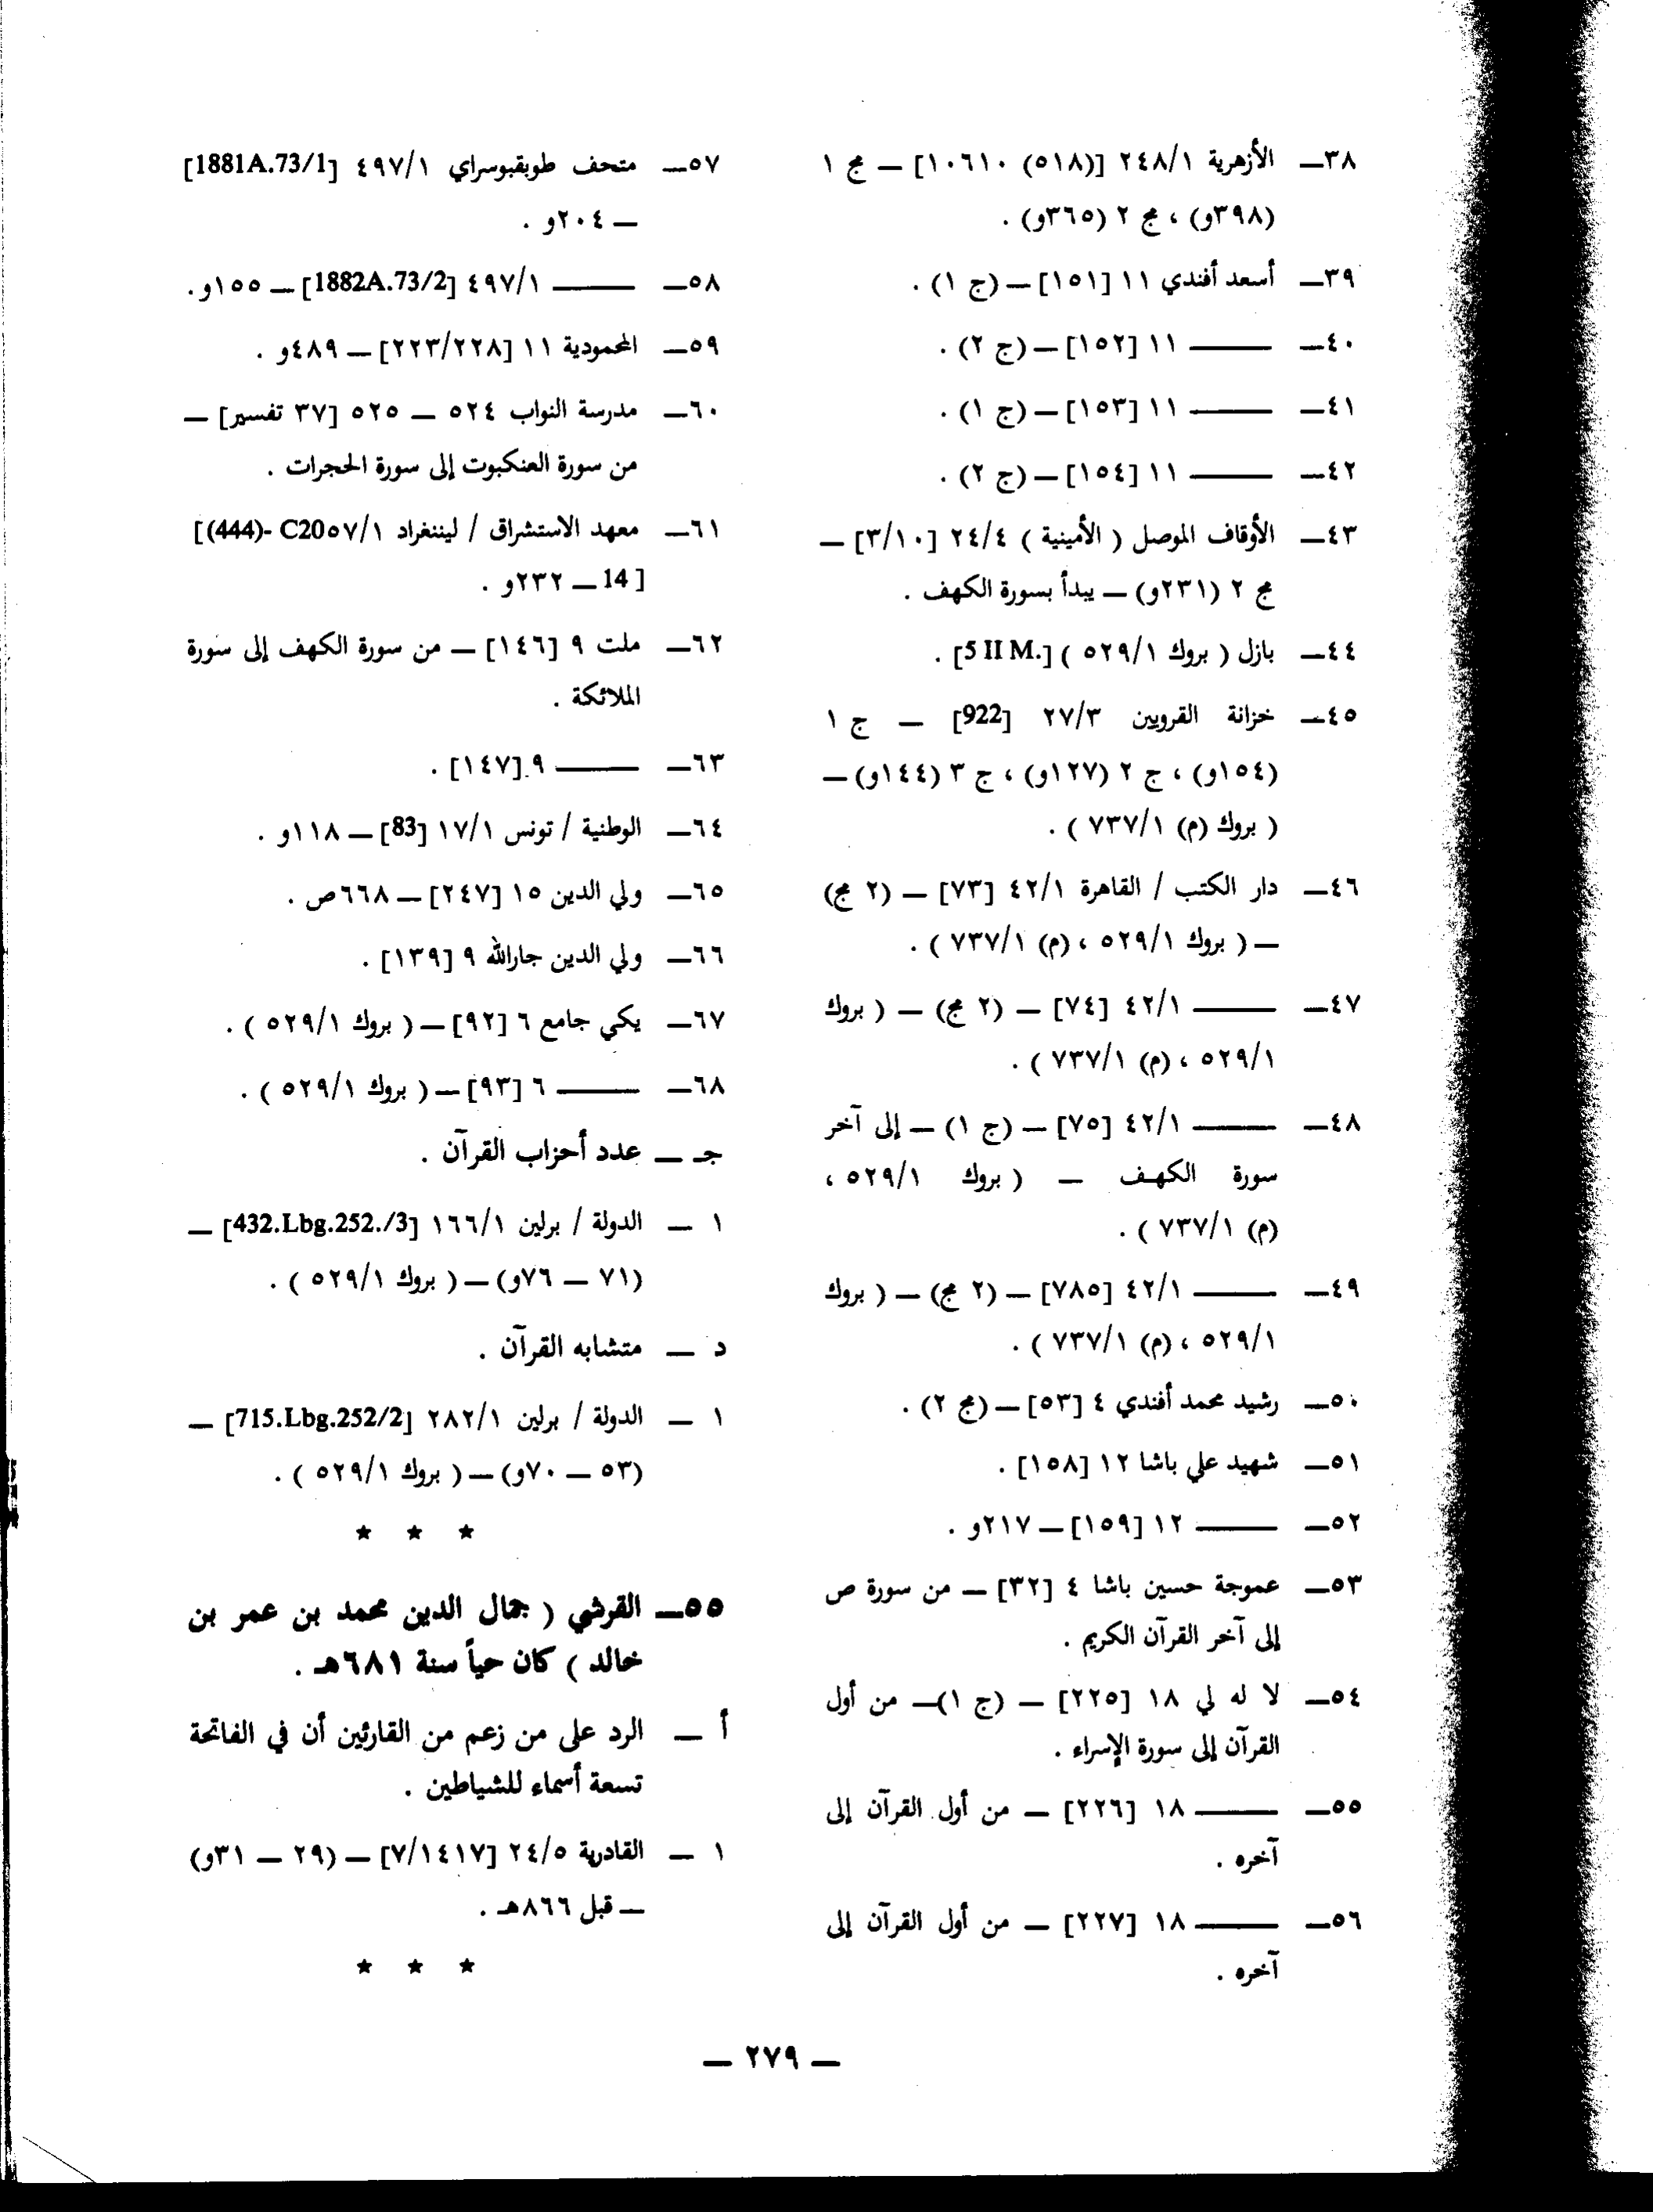 ٣٨ــ الأزهرية ٢٤٨/١ [(٥١٨) ١٠٦١٠] ــ مج ١
(٣٩٨و) ، مج ٢ (٣٦٥و) .
٣٩ــ أسعد أفندي ١١ [١٥١] ــ (ج ١) .
٤٠ــ ـــــــ ١١ [١٥٢] ــ (ج ٢) .
٤١ــ ـــــــ ١١ [١٥٣] ــ (ج ١) .
٤٢ــ ـــــــ ١١ [١٥٤] ــ (ج ٢) .
٤٣ــ الأوقاف الموصل ( الأمينية ) ٢٤/٤ [٣/١٠] ــ
مج ٢ (٢٣١و) ــ يبدأ بسورة الكهف .
٤٤ــ بازل ( بروك ٥٢٩/١ ) [.5 II M] .
٤٥ــ خزانة القرويين ٢٧/٣ [922] ــ ج ١
(١٥٤و) ، ج ٢ (١٢٧و) ، ج ٣ (١٤٤و) ــ
( بروك (م) ٧٣٧/١ ) .
٤٦ــ دار الكتب / القاهرة ٤٢/١ [٧٣] ــ (٢ مج)
ــ ( بروك ٥٢٩/١ ، (م) ٧٣٧/١ ) .
٤٧ــ ـــــــ ٤٢/١ [٧٤] ــ (٢ مج) ــ ( بروك
٥٢٩/١ ، (م) ٧٣٧/١ ) .
٤٨ــ ـــــــ ٤٢/١ [٧٥] ــ (ج ١) ــ إلى آخر
سورة الكهف ــ ( بروك ٥٢٩/١ ،
(م) ٧٣٧/١ ) .
٤٩ــ ـــــــ ٤٢/١ [٧٨٥] ــ (٢ مج) ــ ( بروك
٥٢٩/١ ، (م) ٧٣٧/١ ) .
٥٠ــ رشيد محمد أفندي ٤ [٥٣] ــ (مج ٢) .
٥١ــ شهيد علي باشا ١٢ [١٥٨] .
٥٢ــ ـــــــ ١٢ [١٥٩] ــ ٢١٧و .
٥٣ــ عموجة حسين باشا ٤ [٣٢] ــ من سورة ص
إلى آخر القرآن الكريم .
٥٤ــ لا له لي ١٨ [٢٢٥] ــ (ج ١)ــ من أول
القرآن إلى سورة الإسراء .
٥٥ــ ـــــــ ١٨ [٢٢٦] ــ من أول القرآن إلى
آخره .
٥٦ــ ـــــــ ١٨ [٢٢٧] ــ من أول القرآن إلى
آخره .
٥٧ــ متحف طوبقبوسراي ٤٩٧/١ [1881A.73/1]
ــ ٢٠٤و .
٥٨ــ ـــــــ ٤٩٧/١ [1882A.73/2] ــ ١٥٥و.
٥٩ــ المحمودية ١١ [٢٢٣/٢٢٨] ــ ٤٨٩و .
٦٠ــ مدرسة النواب ٥٢٤ ــ ٥٢٥ [٣٧ تفسير] ــ
من سورة العنكبوت إلى سورة الحجرات .
٦١ــ معهد الاستشراق / ليننغراد ٥٧/١C20 -(444)]
14 ] ــ ٢٣٢و .
٦٢ــ ملت ٩ [١٤٦] ــ من سورة الكهف إلى سورة
الملائكة .
٦٣ــ ـــــــ ٩ [١٤٧] .
٦٤ــ الوطنية / تونس ١٧/١ [83] ــ ١١٨و .
٦٥ــ ولي الدين ١٥ [٢٤٧] ــ ٦٦٨ص .
٦٦ــ ولي الدين جارالله ٩ [١٣٩] .
٦٧ــ يكي جامع ٦ [٩٢] ــ ( بروك ٥٢٩/١ ) .
٦٨ــ ـــــــ ٦ [٩٣] ــ ( بروك ٥٢٩/١ ) .
جـ ــ عدد أحزاب القرآن .
١ ــ الدولة / برلين ١٦٦/١ [432.Lbg.252./3] ــ
(٧١ ــ ٧٦و) ــ ( بروك ٥٢٩/١ ) .
د ــ متشابه القرآن .
١ ــ الدولة / برلين ٢٨٢/١ [715.Lbg.252/2] ــ
(٥٣ ــ ٧٠و) ــ ( بروك ٥٢٩/١ ) .
★ ★ ★
٥٥ــ القرشي ( جمال الدين محمد بن عمر بن
خالد ) كان حياً سنة ٦٨١هـ .
أ ــ الرد على من زعم من القارئين أن في الفاتحة
تسعة أسماء للشياطين .
١ ــ القادرية ٢٤/٥ [٧/١٤١٧] ــ (٢٩ ــ ٣١و)
ــ قبل ٨٦٦هـ .
★ ★ ★
ــ ٢٧٩ ــ